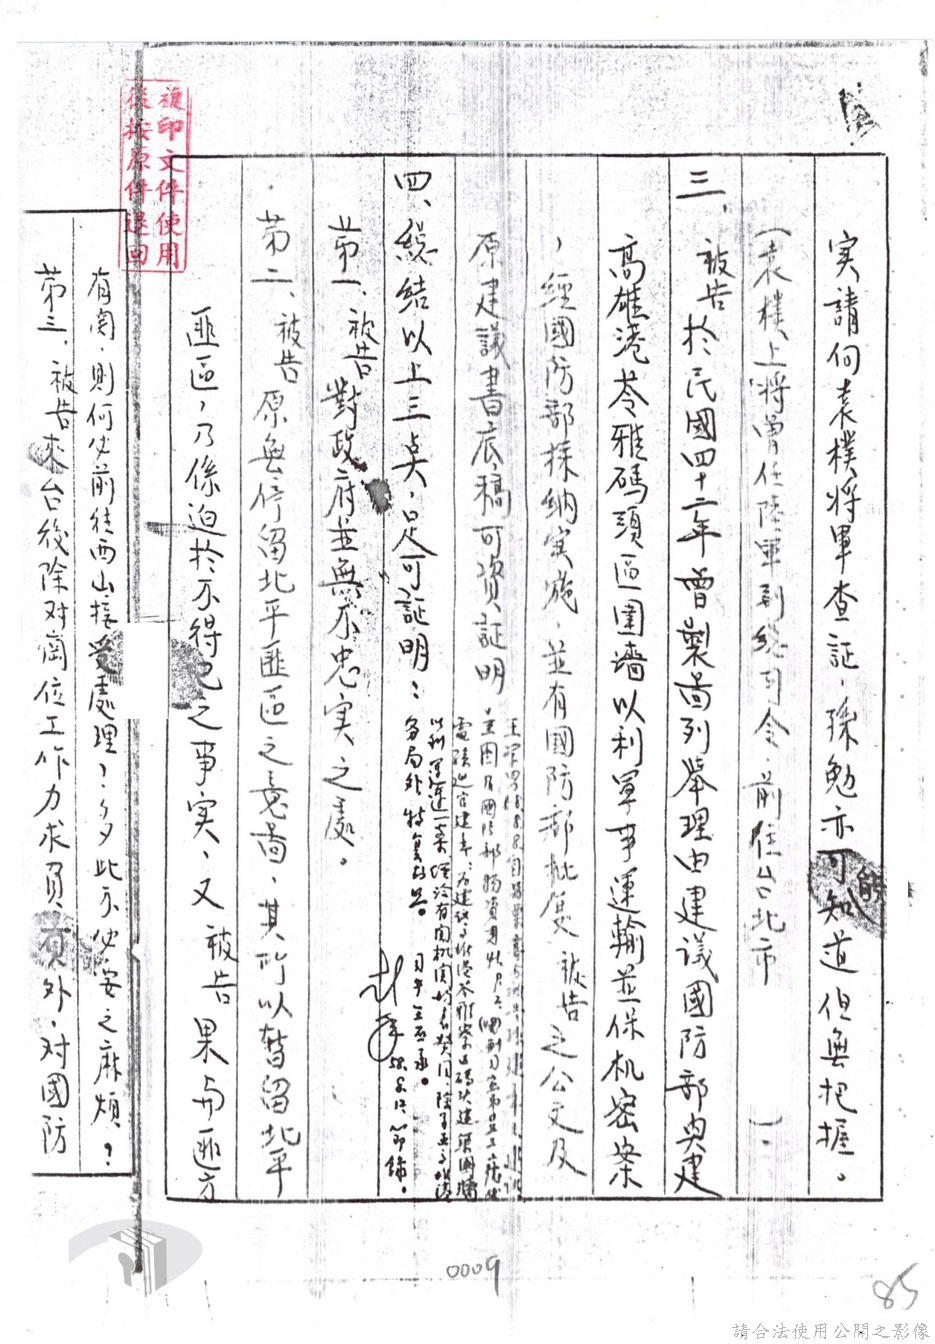 实請向袁樸将軍查証，孫勉亦可能知道但無把握。
（袁樸上将曾任陸軍副總司令，前住台北市　　）。
三、被告於民國四十二年曾製圖列舉理由建議國防部興建
高雄港苓雅碼頭區圍墻以利軍事運輸並保机密案
，經國防部採納实施，並有國防部批復被告之公文及
原建議書底稿可資証明
四、總結以上三点，足可証明：
第一、被告對政府並無不忠实之處。
第二、被告原無停留北平匪區之意圖，其所以暫留北平
匪區，乃係迫於不得已之事实，又被告果与匪方
有関，則何必前往西山接受處理，多此不必要之麻煩？
第三、被告來台後除对崗位工作力求負責外，对國防
複印文件使用
後按原件退回
0009
85
請合法使用公開之影像